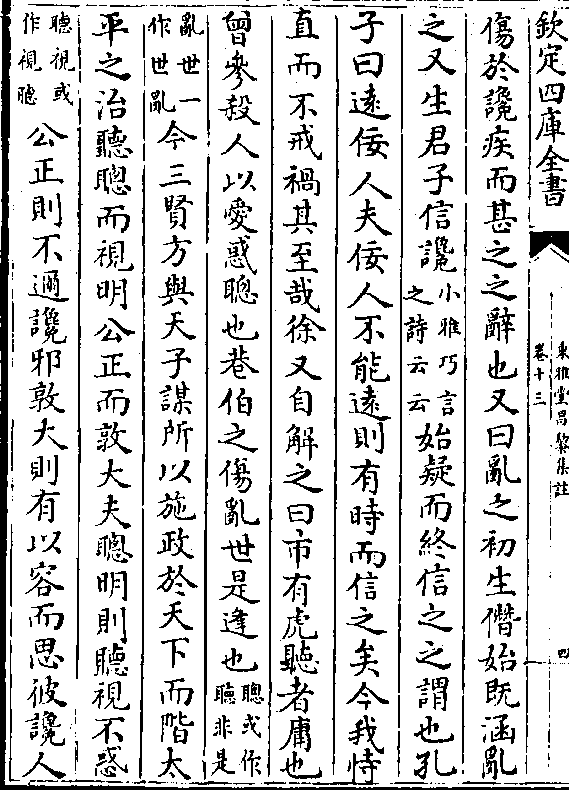 欽定四庫全書
東雅堂昌黎集註
卷十三
四
傷於讒疾而甚之之辭也又曰亂之初生僭始既涵亂
之又生君子信讒小雅巧言之詩云云始疑而終信之之謂也孔
子曰遠佞人夫佞人不能遠則有時而信之矣今我恃
直而不戒禍其至哉徐又自解之曰市有虎聽者庸也
曾參殺人以愛惑聰也巷伯之傷亂世是逢也聰或作聽非是
亂世一作世亂今三賢方與天子謀所以施政於天下而階太
平之治聽聰而視明公正而敦大夫聰明則聽視不惑
聽視或作視聽公正則不邇讒邪敦大則有以容而思彼讒人